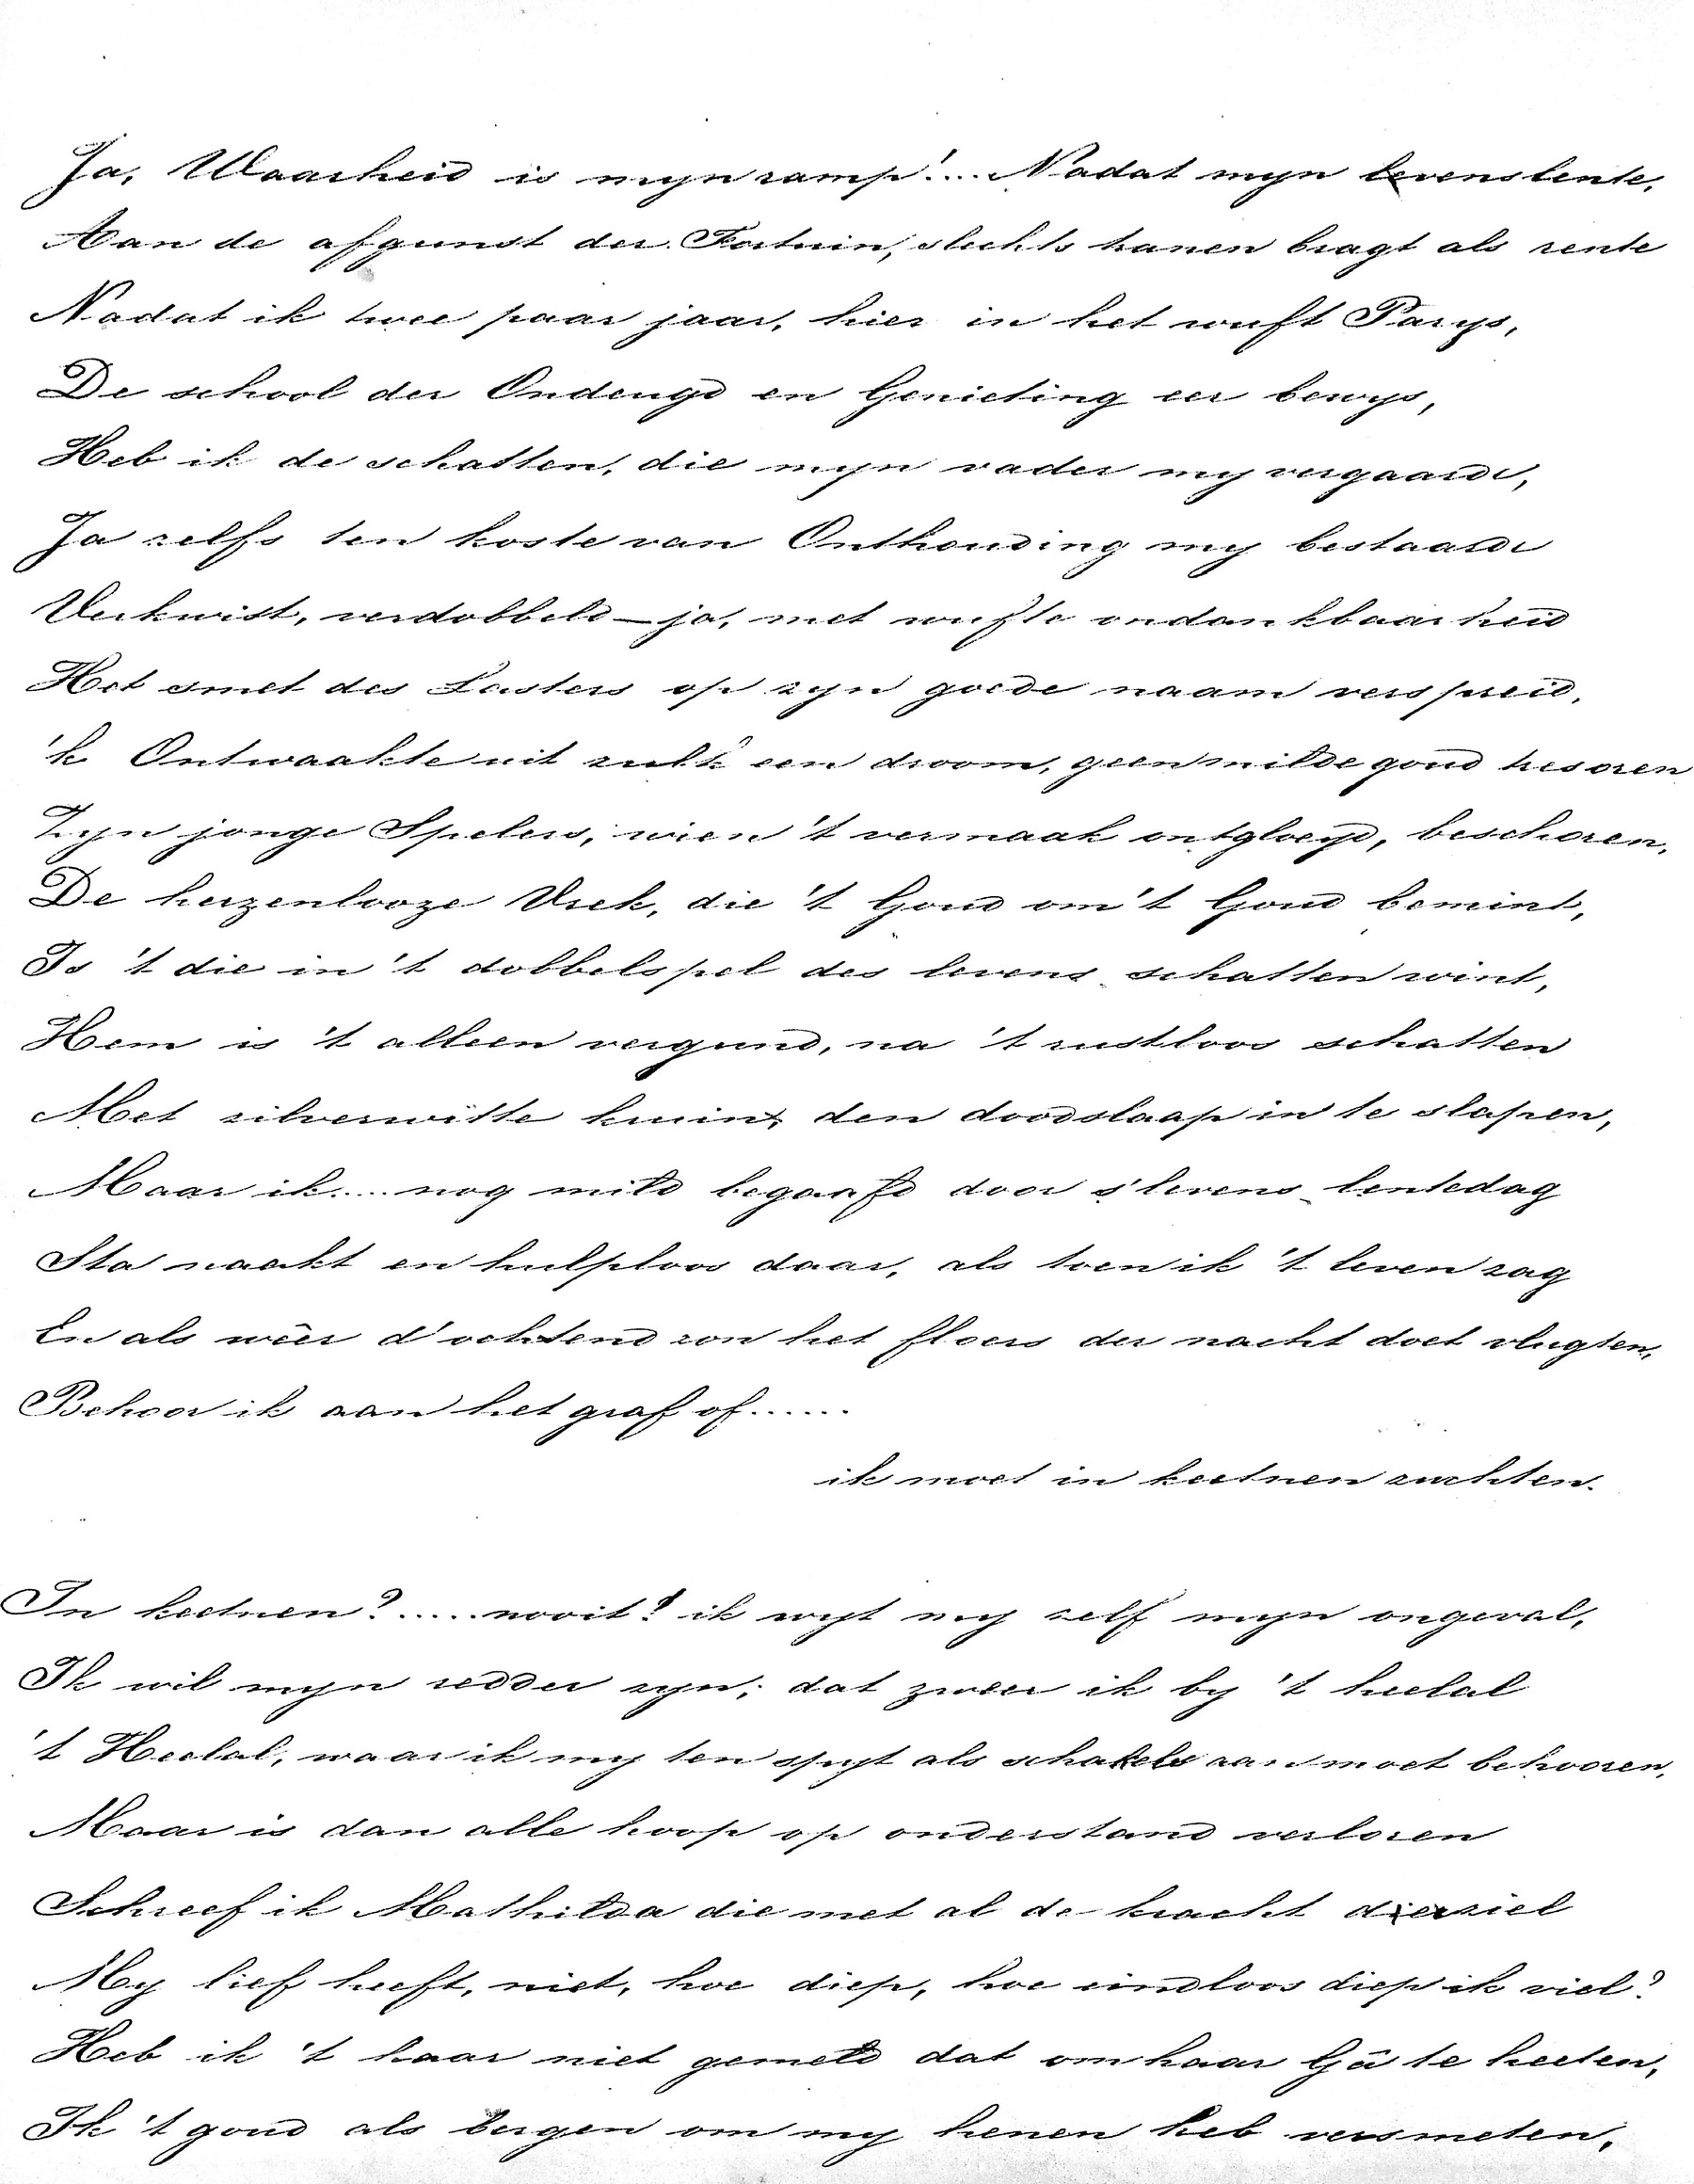 Ja, Waarheid is myn ramp!... Nadat myn levenslente,
Aan de afgunst der Fortuin, slechts tranen bragt als rente
Nadat ik twee paar jaar, hier in het wuft Parys,
De school der Ondeugd en Genieting eer bewys,
Heb ik de schatten, die myn vader my vergaarde,
Ja zelfs ten koste van Onthouding my bespaarde
Verkwist, verdobbeld – ja, met wufte ondankbaarheid
Het smet des Lasters op zyn goede naam verspreid,
'k Ontwaakte uit zulk een droom, geen milde goud tresoren
Zyn jonge Spelers, wien 't vermaak ontgloeyd, beschoren,
De herzenlooze Vrek, die 't Goud om 't Goud bemint,
Is 't die in 't dobbelspel des levens schatten wint,
Hem is 't alleen vergund, na 't rustloos schatten
Met zilverwitte kruin, den doodslaap in te slapen,
Maar ik.... nog mild begaafd door s'levens lentedag
Sta naakt en hulploos daar, als toen ik 't leven zag
En als wêer d'ochtend zon het floers der nacht doet vlugten,
Behoor ik aan het graf of......
ik moet in keetnen zuchten.
In keetnen?..... nooit! ik wyt my zelf myn ongeval,
Ik wil myn redder zyn; dat zweer ik by 't heelal
't Heelal, waar ik my ten spyt als schakels aan moet behooren,
Maar is dan alle hoop op onderstand verloren
Schreef ik Mathilda die met al de kracht der ziel
My lief heeft, niet, hoe diep, hoe eindloos diep ik viel?
Heb ik 't haar niet gemeld dat om haar Gâ te heeten,
Ik 't goud als bergen om my henen heb versmeten,